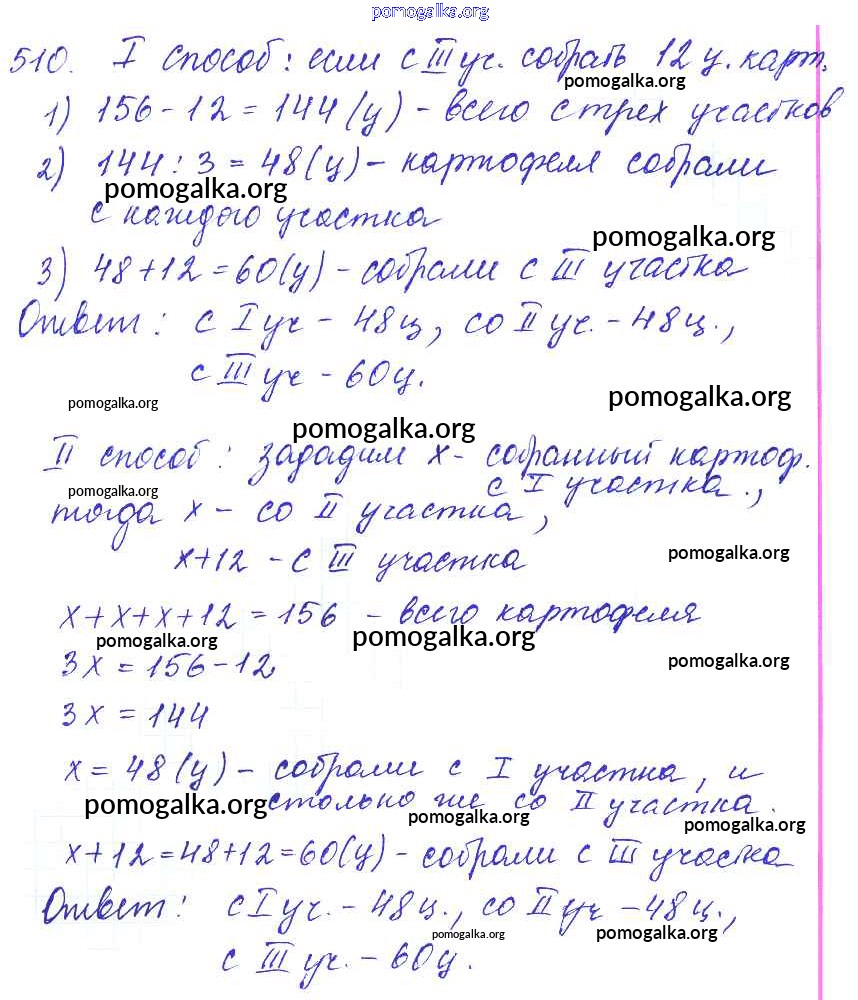 pomogalka.org
510. I способ: если с III уч. собрать 12 ц. карт.
pomogalka.org
1) 156 - 12 = 144 (ц) - всего с трех участков
2) 144 : 3 = 48 (ц) - картофеля собрали
pomogalka.org
с каждого участка
pomogalka.org
3) 48 + 12 = 60 (ц) - собрали с III участка
Ответ: с I уч - 48 ц, со II уч. - 48 ц.,
с III уч - 60 ц.
pomogalka.org
pomogalka.org
pomogalka.org
II способ: зададим x - собранный картоф.
с I участка.,
pomogalka.org
тогда x - со II участка,
x + 12 - с III участка
pomogalka.org
x + x + x + 12 = 156 - всего картофеля
pomogalka.org
pomogalka.org
3x = 156 - 12
pomogalka.org
3x = 144
x = 48 (ц) - собрали с I участка, и
pomogalka.org
столько же со II участка.
pomogalka.org
pomogalka.org
x + 12 = 48 + 12 = 60 (ц) - собрали с III участка
Ответ: с I уч. - 48 ц., со II уч - 48 ц.,
pomogalka.org
pomogalka.org
с III уч. - 60 ц.